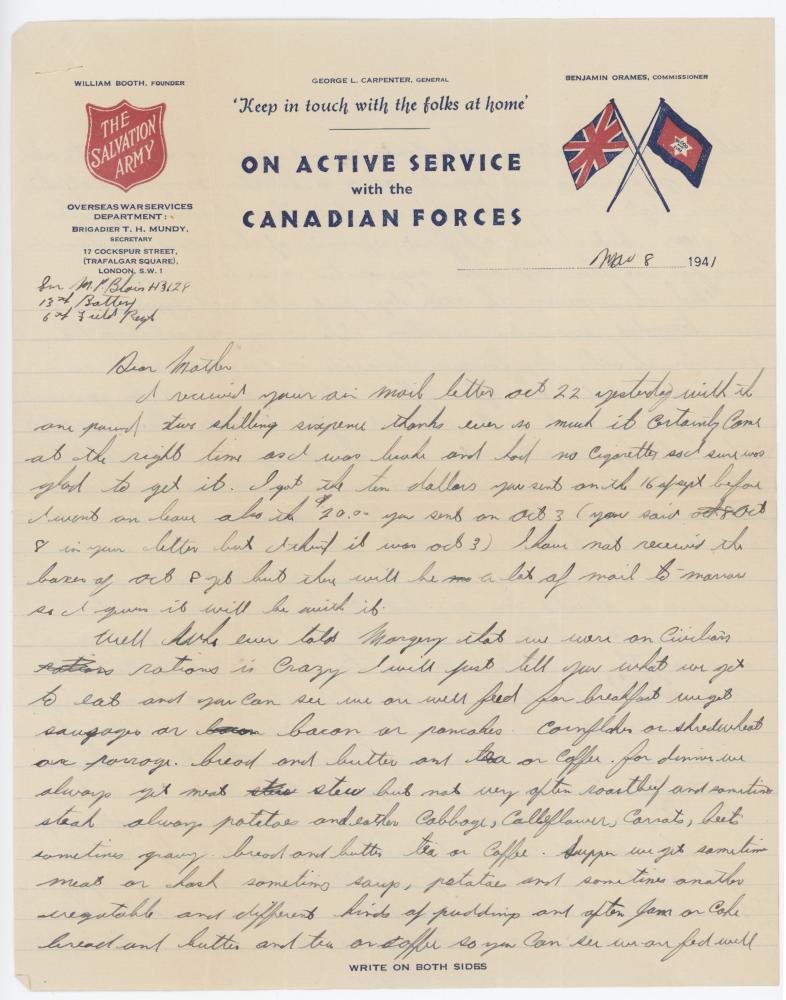 WILLIAM BOOTH, FOUNDER
GEORGE L. CARPENTER, GENERAL
BENJAMIN ORAMES, COMMISSIONER
'Keep in touch with the folks at home'
THE
SALVATION
ARMY
ON ACTIVE SERVICE
with the
CANADIAN FORCES
OVERSEAS WAR SERVICES
DEPARTMENT:
BRIGADIER T. H. MUNDY,
SECRETARY
17 COCKSPUR STREET,
(TRAFALGAR SQUARE),
LONDON, S.W. 1
Nov 8 1941
Gnr M.P. Blois H3628
13th Battery
6th Field Regt
Dear Mother
I received your air mail letter oct 22 yesterday with the
one pound two shilling sixpence thanks ever so much it certainly came
at the right time as I was broke and had no cigarettes so I sure was
glad to get it. I got the ten dollars you sent on the 16 of sept before
I went on leave also the $20.00 you sent on oct 3 (you said oct 8 oct
8 in your letter but I think it was oct 3) I have not received the
boxes of oct 8 yet but there will be a lot of mail to-morrow
so I guess it will be with it.
Well who ever told Margery that we were on Civilian
rations rations is Crazy I will just tell you what we get
to eat and you can see we are well feed for breakfast we get
sausages or bacon bacon or pancakes. Cornflakes or shredwheat
or porrage. bread and butter and tea or Coffee. for dinner we
always get meat stew stew but not very often roastbeef and sometime
steak always potatoes and eather Cabbage, Calleflawer, Carrats, beets
sometimes gravy. bread and butter tea or Coffee. Supper we get sometime
meat or hash sometims soup, potatoes and sometimes another
vegatable and different kinds of puddings and often Jam or Cake
bread and butter and tea or coffee so you can see we are fed well
WRITE ON BOTH SIDES